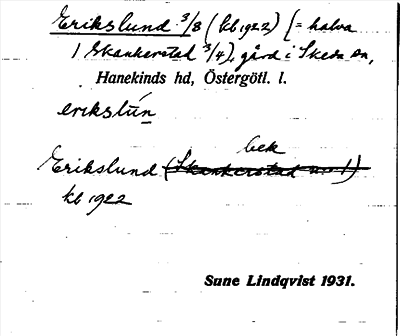 Erikslund 3/8 (kb 1922) (= halva
1 Skankerstad 3/4), gård i Skeda sn,
Hanekinds hd, Östergötl. l.
erikslún
bek
Erikslund (Skankerstad nr 1)
kb 1922
Sune Lindqvist 1931.